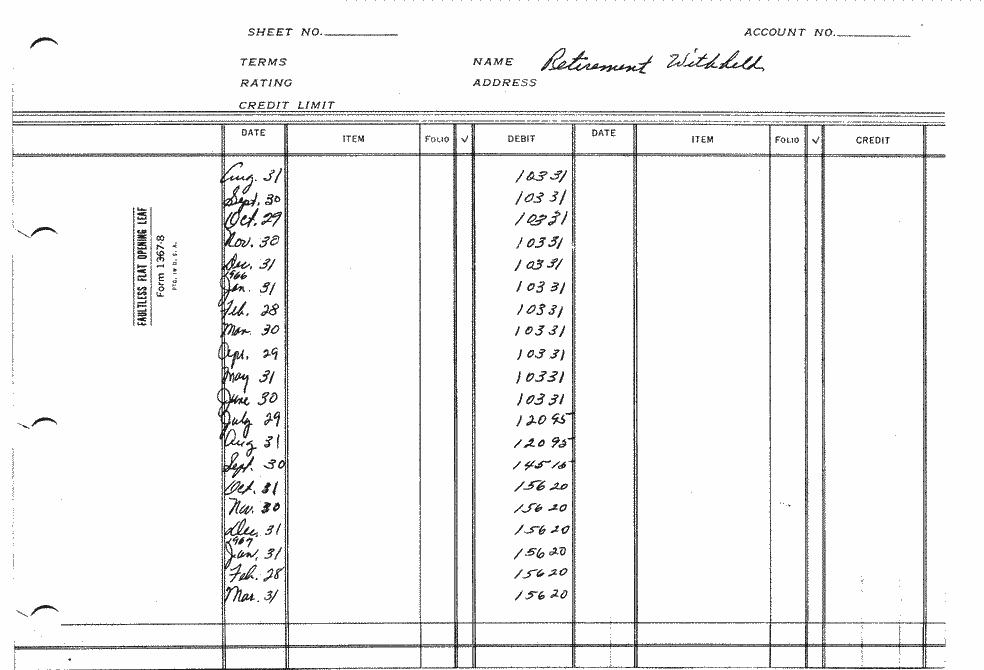 SHEET NO. ACCOUNT NO.
TERMS NAME Retirement Withheld
RATING ADDRESS
CREDIT LIMIT
DATE ITEM FOLIO √ DEBIT DATE ITEM FOLIO √ CREDIT
Aug. 31 103 31
Sept. 30 103 31
Oct. 29 103 31
Nov. 30 103 31
Dec. 31 103 31
1966
Jan. 31 103 31
Feb. 28 103 31
Mar. 30 103 31
Apr. 29 103 31
May 31 103 31
June 30 103 31
July 29 120 95
Aug 31 120 95
Sept. 30 145 15
Oct. 31 156 20
Nov. 30 156 20
Dec. 31 156 20
1967
Jan. 31 156 20
Feb. 28 156 20
Mar. 31 156 20
FAULTLESS FLAT OPENING LEAF
Form 1367-8
PTG. IN U. S. A.